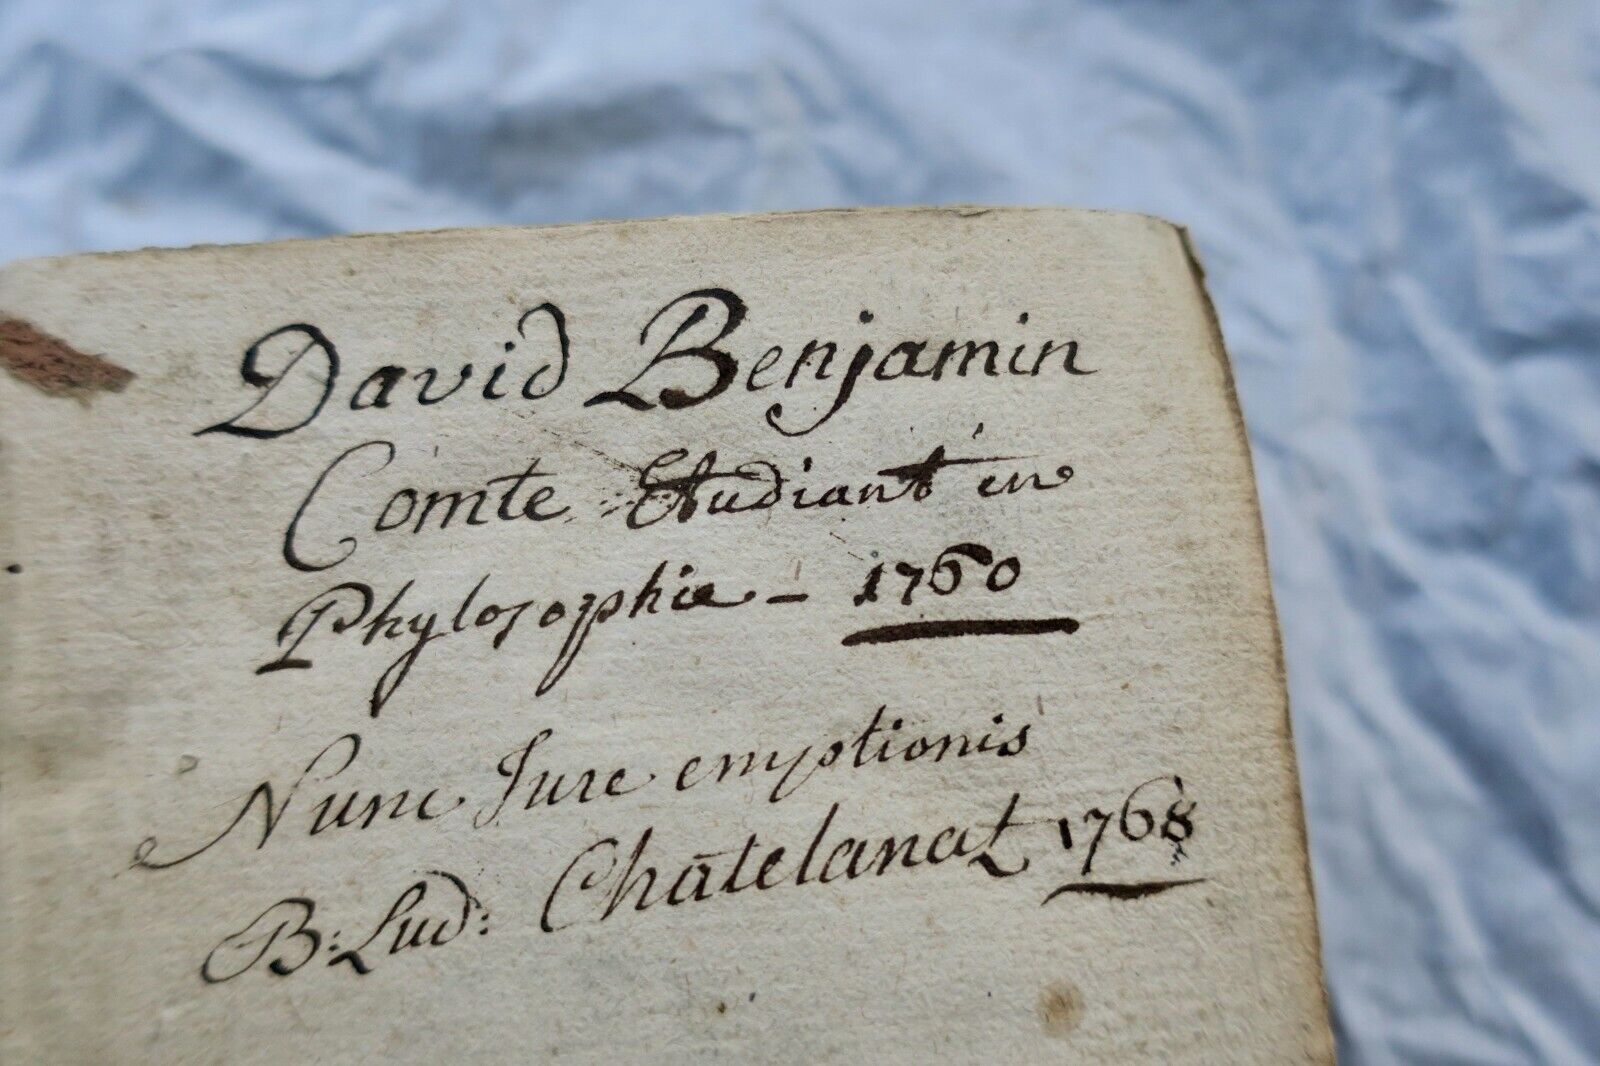 David Benjamin
Comte Etudiant en
Phylosophie - 1760
Nunc Jure emptionis
B: Lud: Châtelanat 1768